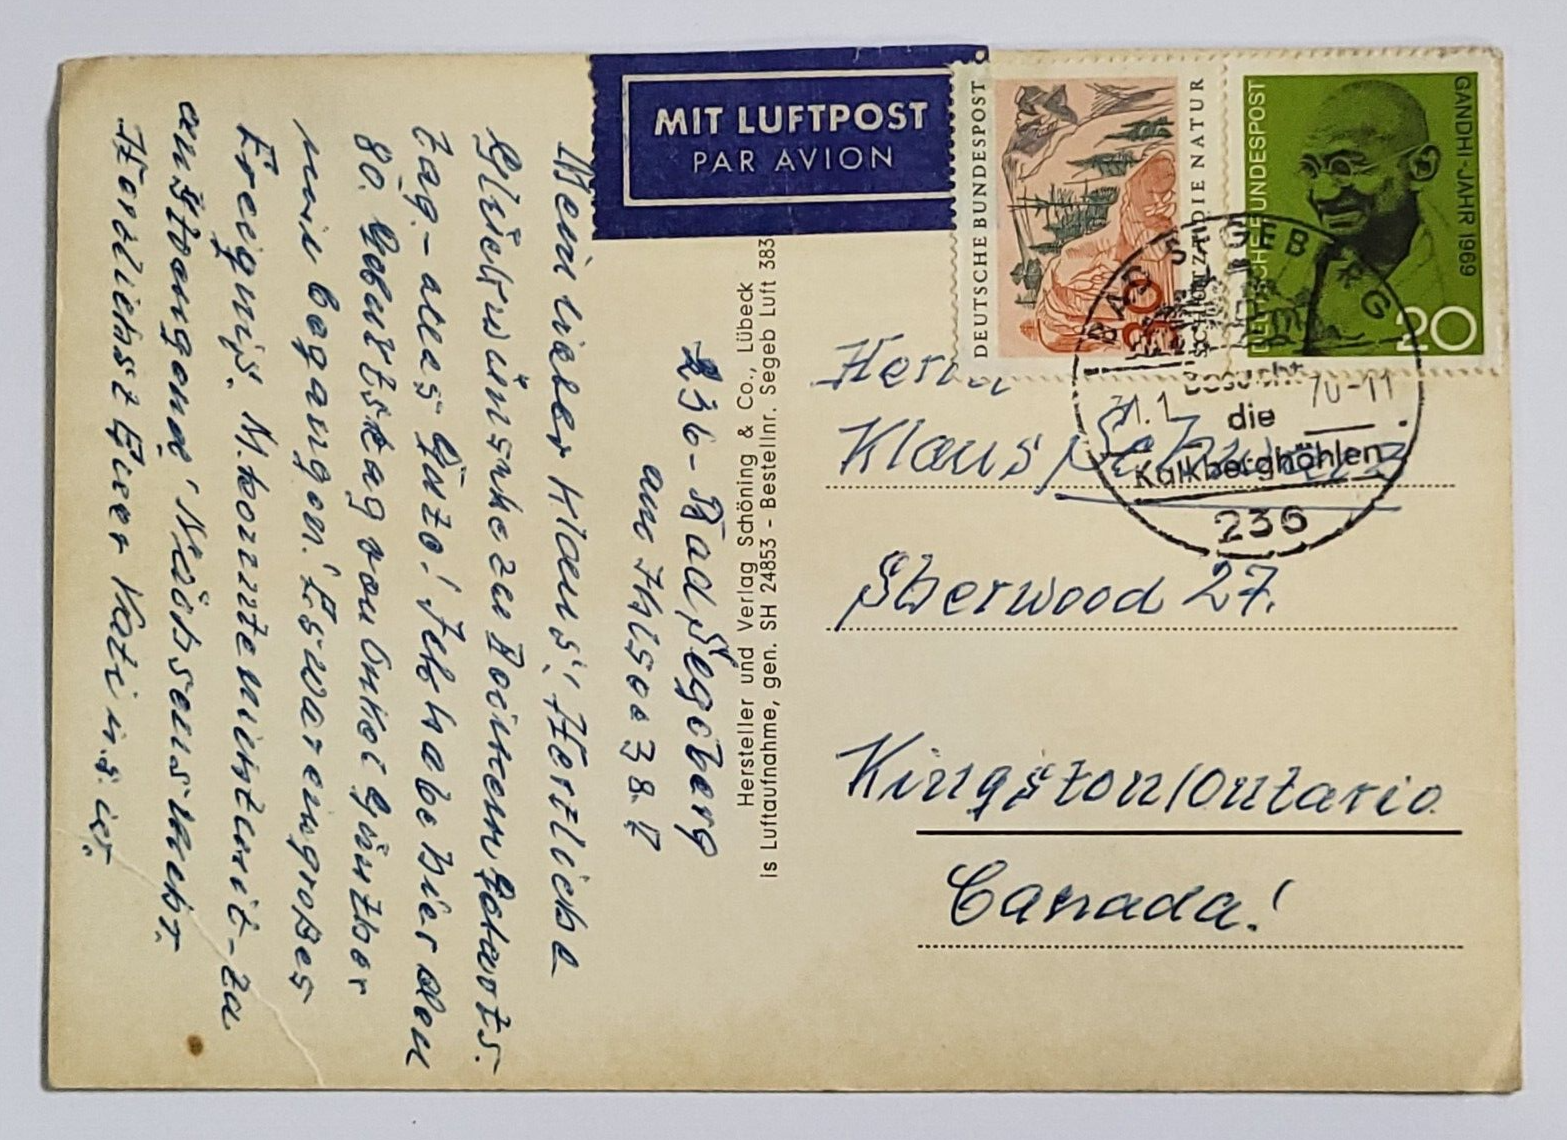 MIT LUFTPOST
PAR AVION
DEUTSCHE BUNDESPOST
SCHÜTZT DIE NATUR
30
DEUTSCHE BUNDESPOST
GANDHI-JAHR 1969
20
BAD SEGEBERG
Besucht
die
Kalkberghöhlen
236
236-Bad Segeberg
am Ihlsee 38.
Mein lieber Klaus! Herzliche
Glückwünsche zu Deinem Geburts-
tag. - alles Gute! Ich habe hier den
80. Geburtstag von Onkel Günther
mit begangen! Es war ein großes
Ereignis. M. konnte nicht mit - zu
anstrengend!
Herzlichst Euer
Hersteller und Verlag Schöning & Co., Lübeck
is Luftaufnahme, gen. SH 24853 - Bestellnr. Segeb Luft 383
Herrn
Klaus
Sherwood 27.
Kingston/Ontario
Canada!